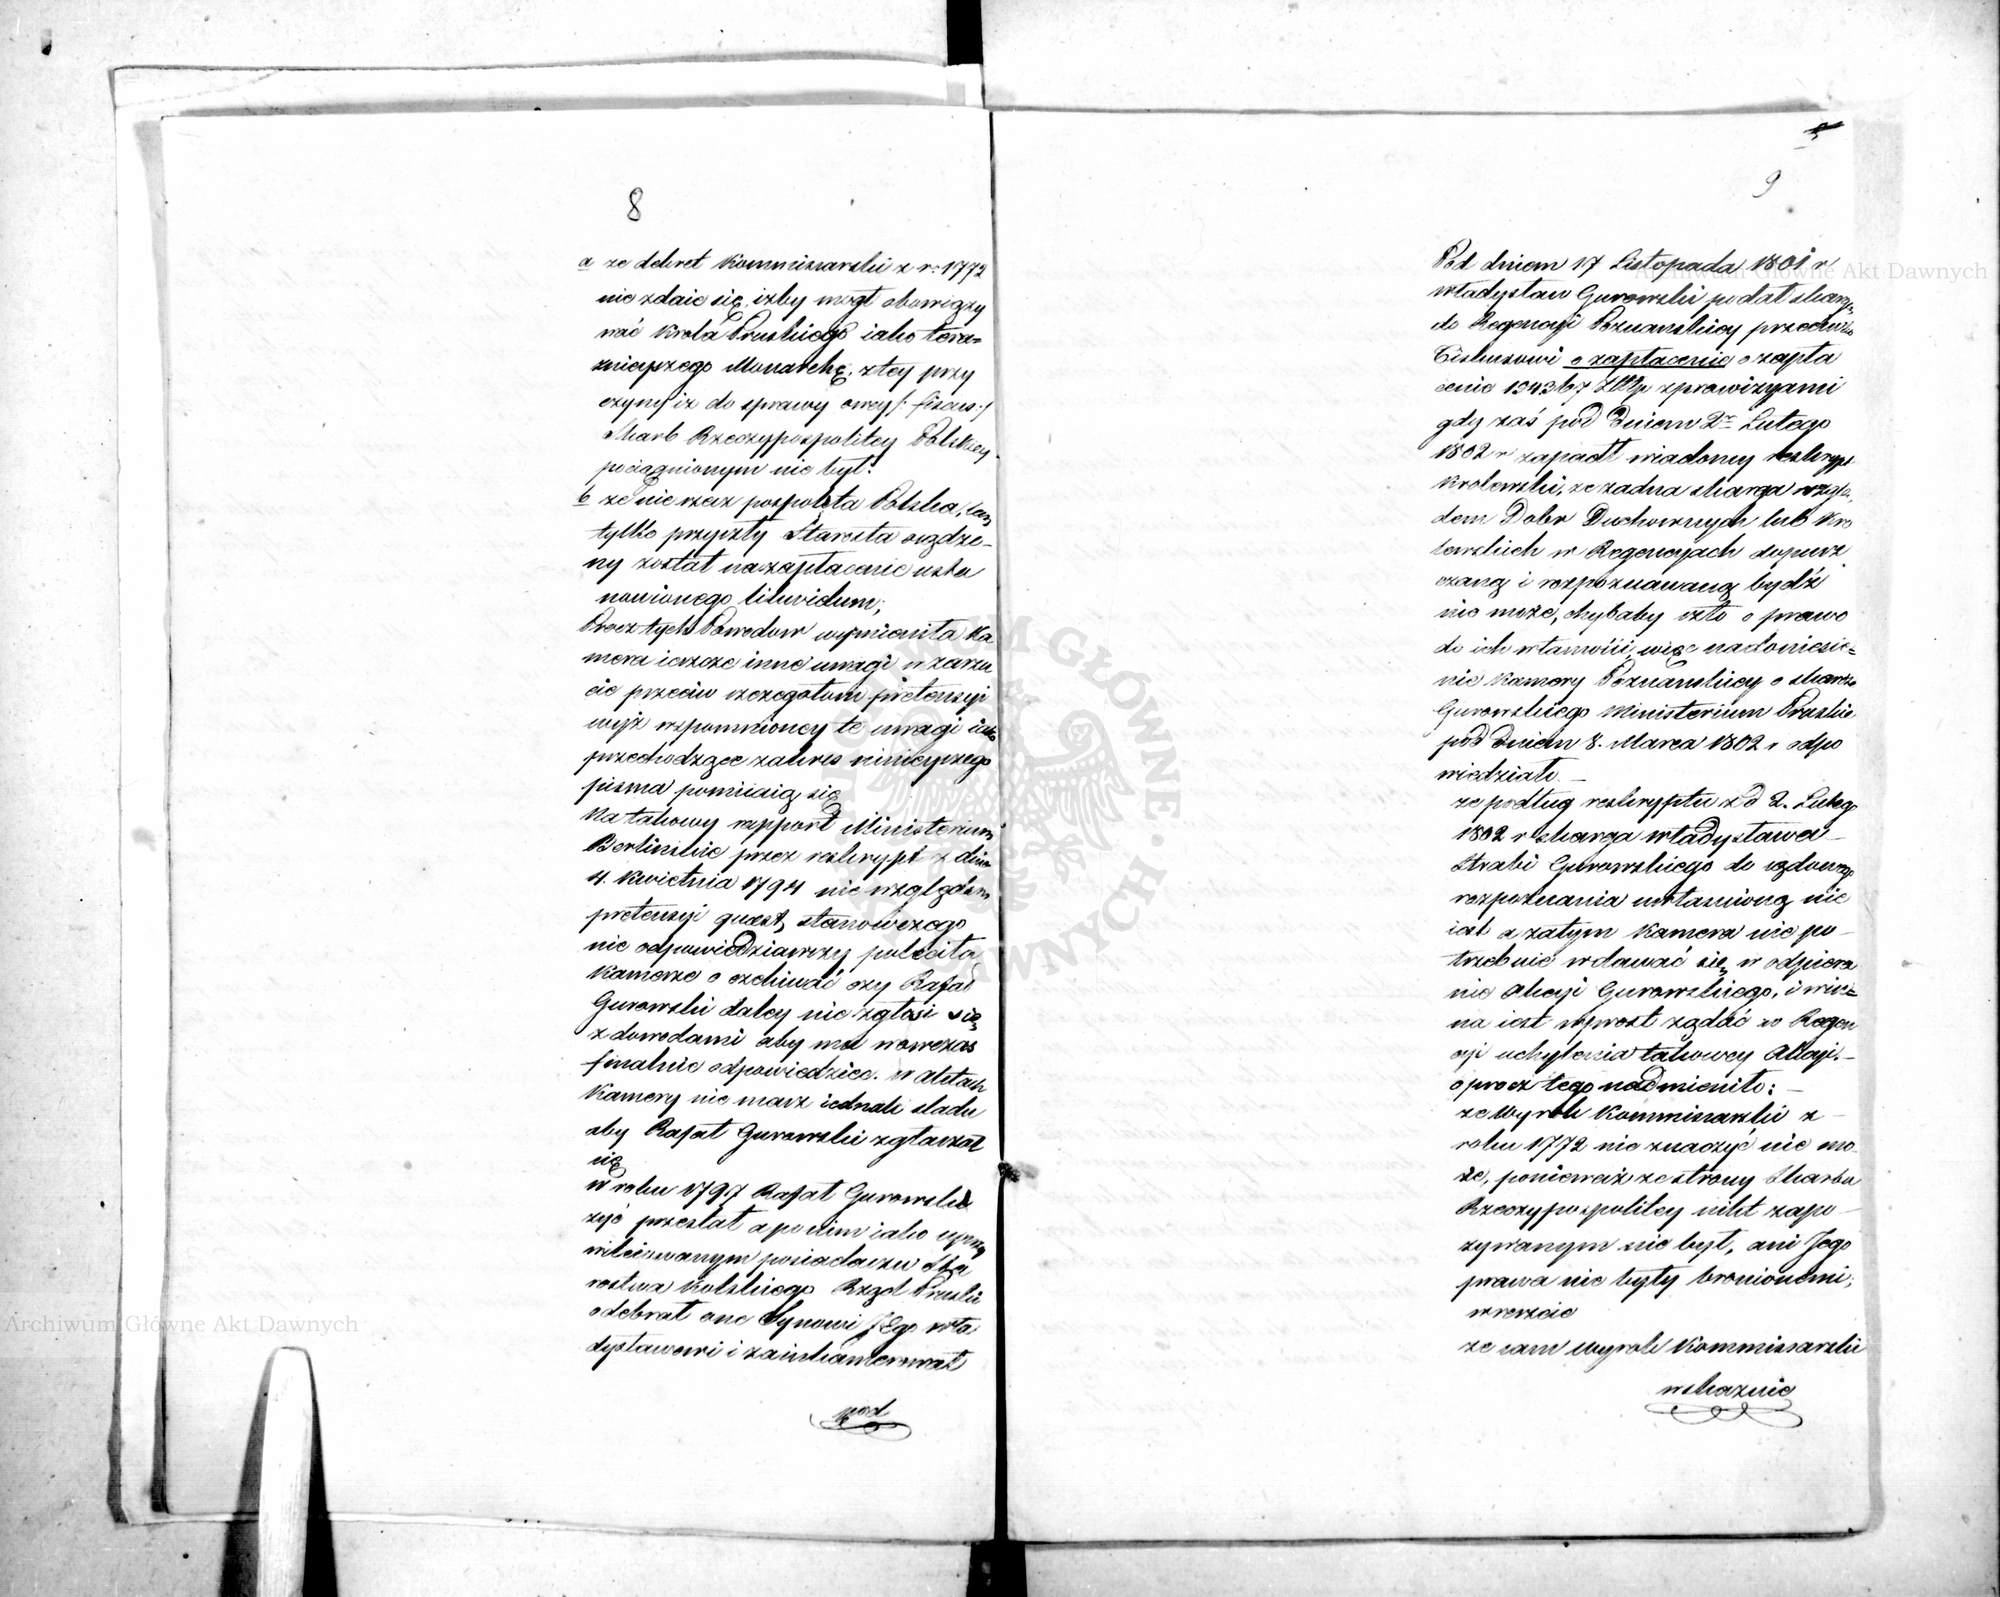 8
a ze dekret Kommissarski z r: 1772
nie zdaie się, izby mogł obowięzy
wać Krola Pruskiego iako tera=
znieyszego Monarchę, z tey przy
czyny iz do sprawy owey /: fiscus :/
Skarb Rzeczypospolitey Polskiey
pociągnionym nie był.
b ze nie rzecz pospolita Polska, lecz
tylko przyszły Starosta osądzo-
ny został na zapłacenie usta
nowionego likwidum;
Procz tych Powodow wymieniła Ka
mera ieszcze inne uwagi w zarzu
cie przeciw szczegołom pretensyi
wyż wspomnioney te uwagi iako
przechodzące zakres ninieyszego
pisma pomiiaią się
Na takowy rapport Ministerium
Berlinskie przez reskrypt z dnia
4. Kwietnia 1794 nic względem
pretensyi quest, stanowczego
nie odpowiedziawszy poleciła
Kamerze oczekiwać czy Rafał
Gurowski daley nie zgłosi się
z dowodami aby mu wowczas
finalnie odpowiedziec. w aktach
Kamery nie masz iednak sladu
aby Rafał Gurowski zgłaszał
się
w roku 1797 Rafał Gurowski
żyć przestał a po nim iako uprzy
wileiowanym posiadaczu Sta
rostwa Kolskiego Rząd Pruski
odebrał one Synowi Jego Wła
dysławowi i zainkamerował
pod
9
Pod dniem 17 Listopada 1801 r
Władysław Gurowski podał skargę
do Regencyi Poznanskiey przeciwko
Fiskusowi o zapłacenie o zapła
cenie 194367 Złłp z prowizyami
gdy zaś pod Dniem 2r Lutego
1802 r zapadł wiadomy reskrypt
Krolewski, ze zadna skarga wzglę
dem Dobr Duchownych lub Kro
lewskich w Regencyach dopusz
czaną i rozpoznawaną bydź
nie może, chybaby szło o prawo
do ich własnośći, więc na doniesie=
nie Kamery Poznanskiey o skardze
Gurowskiego Ministerium Pruskie
pod Dniem 8. Marca 1802 r odpo
wiedziało. _
ze podług reskryptu z d 2. Lutego
1802 r skarga Władysława _
Hrabi Gurowskiego do sądowego
rozpoznania własciwą nie
iest a zatym Kamera nie po_
trzebuie wdawać się w odpiera
nie Akcyi Gurowskiego, i win=
na iest wprost żądać w Regen
cyi uchylenia takowey Akcyi. _
oprocz tego nadmieniło: _
ze Wyrok Kommissarski z _
roku 1772 nic znaczyć nie mo_
że, ponieważ ze strony Skarbu
Rzeczypospolitey nikt zapo_
zywanym nie był, ani Jego
prawa nie były bronionemi;
wreszcie
ze sam wyrok Kommissarski
wskazuie
Archiwum Główne Akt Dawnych
Archiwum Główne Akt Dawnych